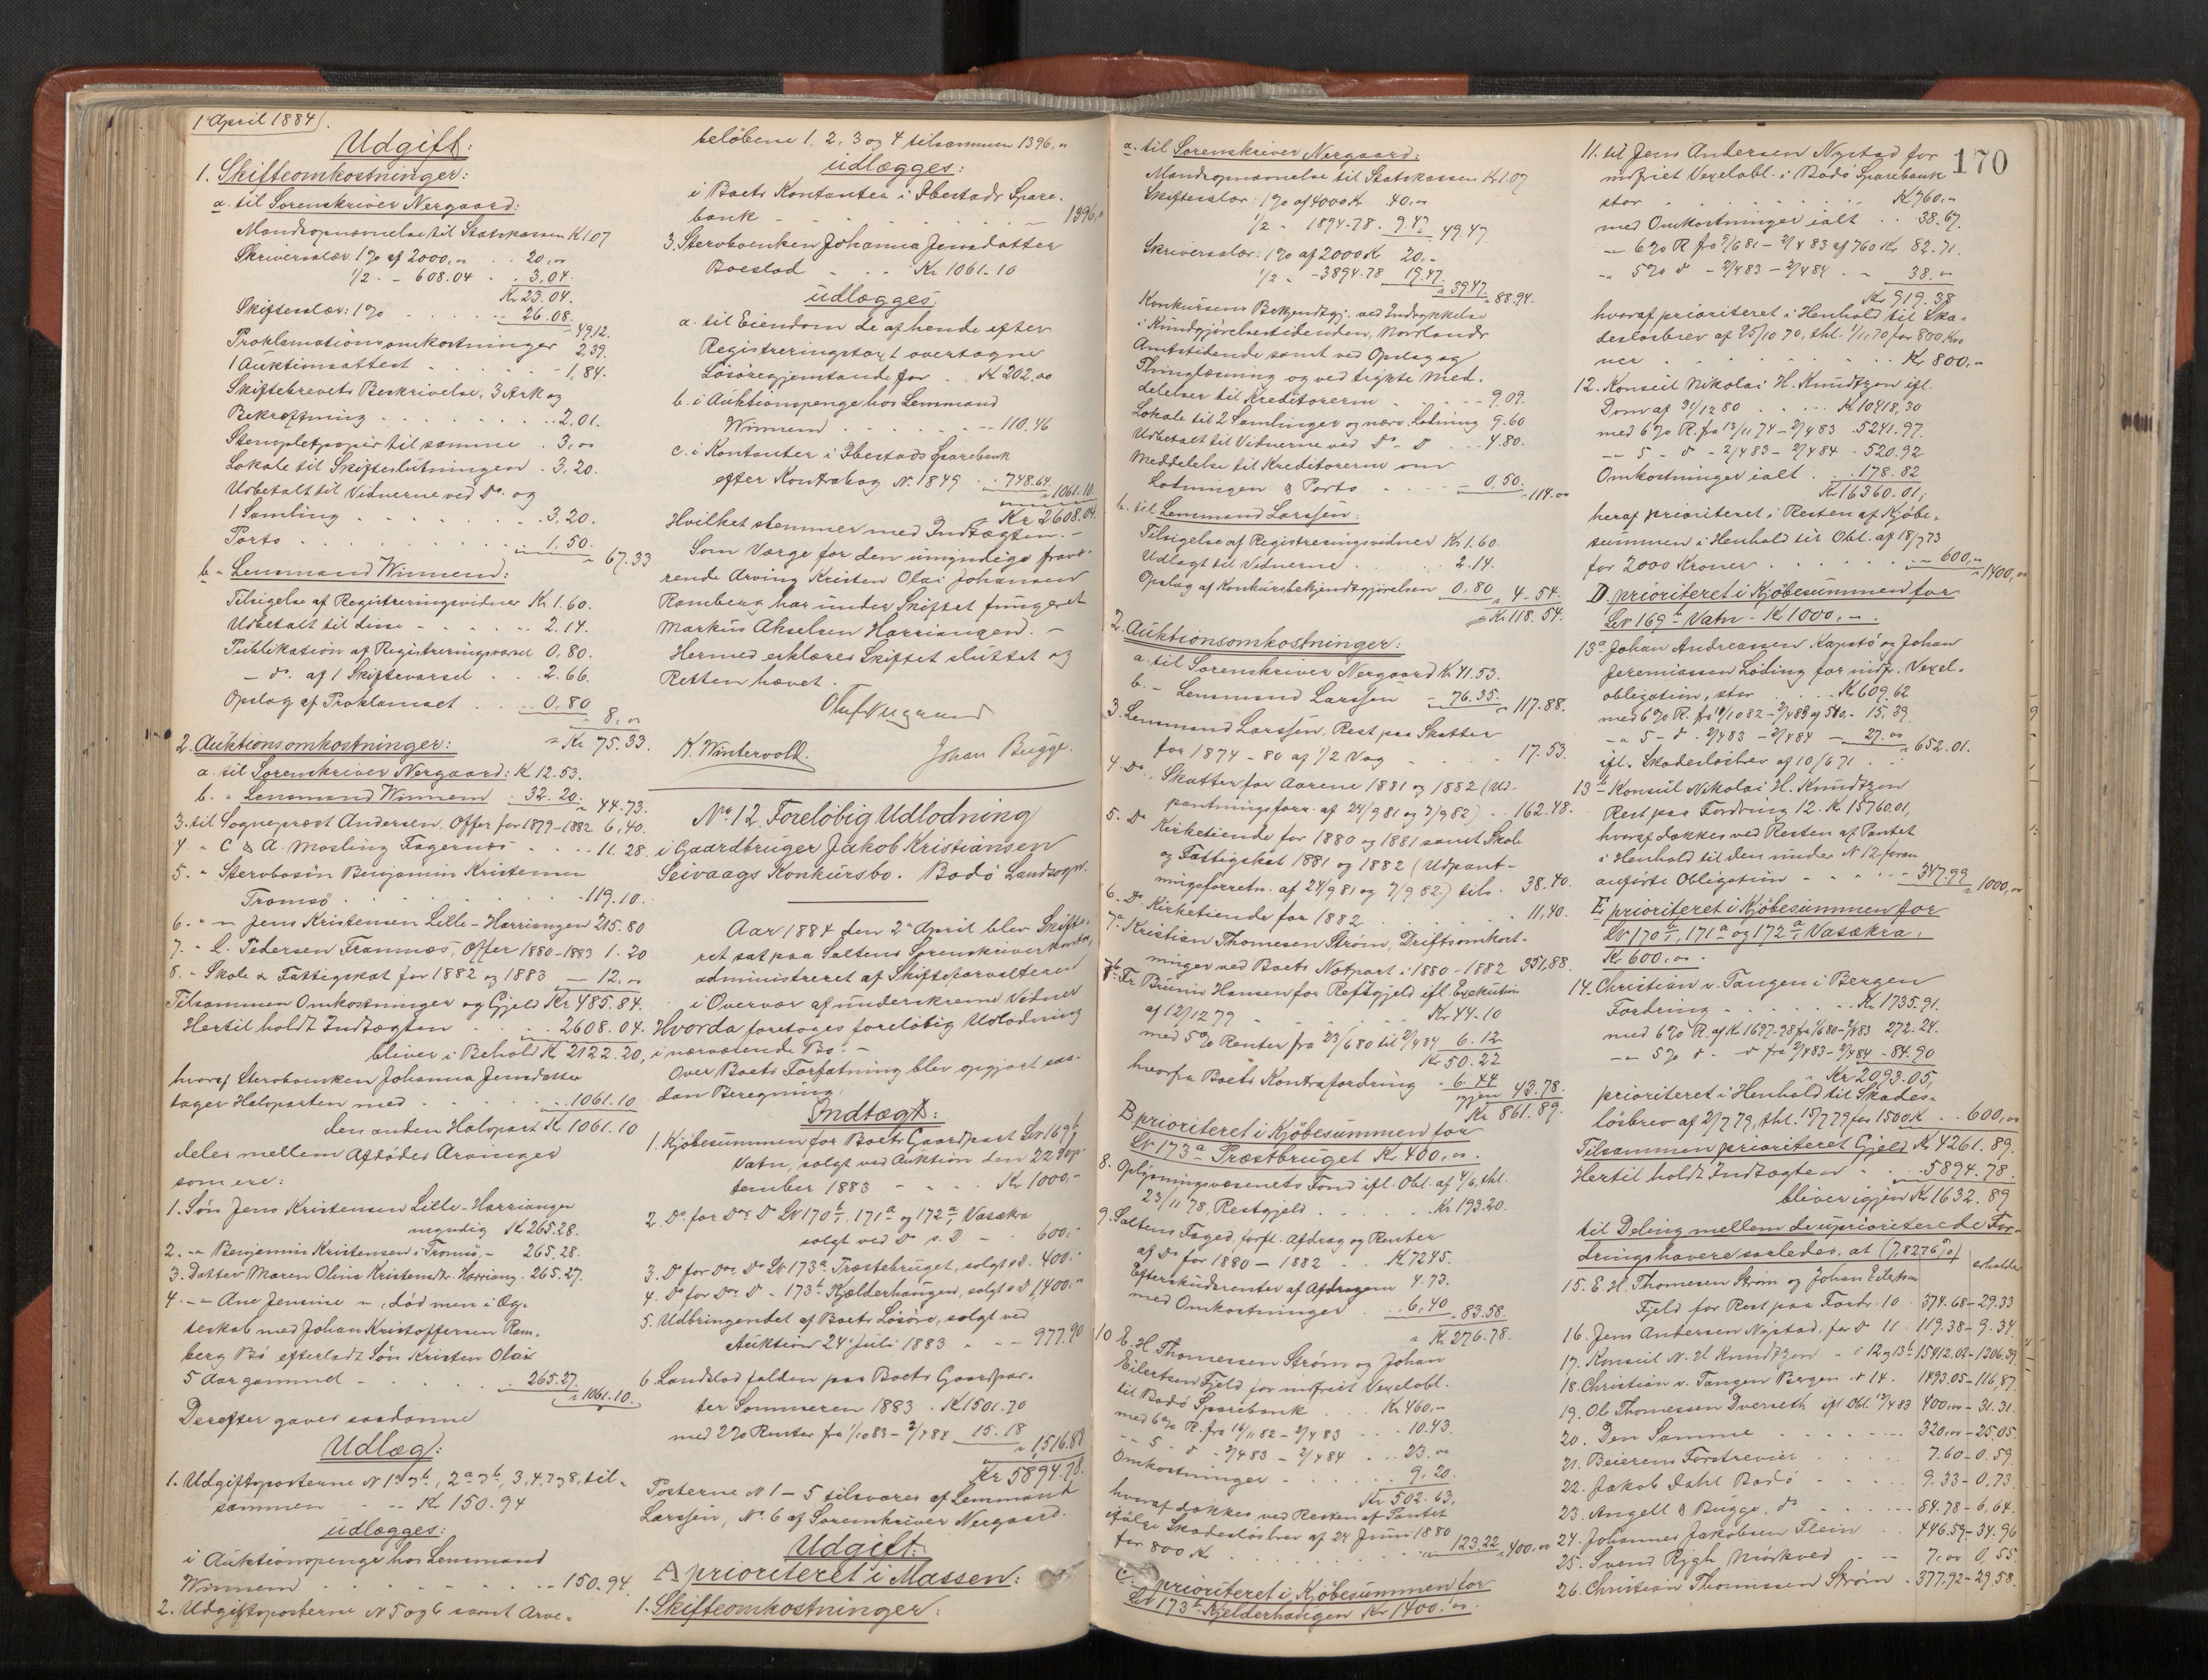 1 April 1884.
Udgift:
1. Skifteomkostninger:
a. til Sorenskriver Nergaard:
Mandsopnævnelse til Statskassen K 1.07
Skriversalær 1% af 2000,00 . . 20,00
1/2 - - 608.04 . . 3,04.
Kr 23.04.
Skiftesalær: 1% . . . . . 26.08.
49,12.
Proklamationsomkostninger 2,39.
1 Auktionsattest . . . . . 1,84.
Skiftebrevets Beskrivelse, 3 Ark og
Bekræftning . . . . . . 2,01.
Stempletpapir til samme . 3,00
Lokale til Skifteslutningen . 3,20.
Udbetalt til Vidnerne ved Do. og
1 Samling . . . . . . . 3,20.
Porto . . . . . . . . 1,50.
" 67.33
b. " Lensmand Winnem:
Tilsigelse af Registreringsvidner Kr. 1.60.
Udbetalt til disse - - - - 2.14.
Publikation af Registreringsvarsel 0.80.
- do. af 1 Skiftevarsel . . . 2.66.
Opslag af Proklamaet . . . 0,80
8,00
= Kr 75.33.
2. Auktionsomkostninger:
a. til Sorenskriver Nergaard: K 12.53.
b. " Lensmand Winnem . 32.20.
" 44.73.
3. til Sogneprest Andersen, Offer for 1879-1882 6,40.
4 " C & A. Mosling Fagernæs . . . 11.28.
5. " Stervbosøn Benjamin Kristensen
Tromsö . . . . . . . 119.10.
6. " - Jens Kristensen Lille-Harriangen 215.80
7. " L. Pedersen Framnæs, Offer 1880-1883 1.20
8. " Skole & Fattigskat for 1882 og 1883 - 12,00
Tilsammen Omkostninger og Gjeld Kr 485.84.
Hertil holdt Indtægten . . . . 2608.04.
bliver i Behold K 2122.20,
hvoraf Stervboenken Johanna Jensdatter
tager Halvparten med . . . . 1061.10
den anden Halvpart K 1061.10
deles mellem Afdødes Arvinger
som ere:
1. Søn Jens Kristensen Lille-Harriangen
myndig K 265.28.
2. -"- Benjamin Kristensen i Tromsö, - 265.28.
3. Datter Maren Oline Kristensdtr. Harriang. 265.27.
4. -"- Ane Jensine -"-, död men i Æg-
teskab med Johan Kristoffersen Ram-
berg Bö efterladt Søn Kristen Olai
5 Aar gammel . . . . . 265.27.
" 1061.10.
Derefter gaves saadanne
Udlæg:
1. Udgiftsposterne N 1 a og b, 2 a og b, 3, 4, 7 og 8, til-
sammen - - - Kr 150.94
udlægges:
i Auktionspenge hos Lensmand
Winnem . . . . . . . - 150.94.
2. Udgiftsposterne N 5 og 6 samt Arve-
beløbene 1, 2, 3 og 4 tilsammen 1396,00
udlægges:
i Boets Kontanter i Ibestads Spare-
bank - - - - - - 1396,00
3. Stervboenken Johanna Jensdatter
Boeslod - - - Kr 1061.10
udlægges:
a. til Eiendom de af hende efter
Registreringstaxt overtagne
Løsøregjenstande for . K 202,00
b. i Auktionspenge hos Lensmand
Winnem - - - - - 110.46
c. i Kontanter i Ibestads Sparebank
efter Kontrabog N. 1849 . . 748.64.
" 1061.10.
Kr 2608.04.
Hvilket stemmer med Indtægten. -
Som Værge for den umyndige fravæ-
rende Arving Kristen Olai Johansen
Ramberg har under Skiftet fungeret
Markus Akselsen Harriangen. -
Hermed erklæres Skiftet sluttet og
Retten hævet.
Oluf Nergaard
K. Wintervold.
Johan Bugge.
No. 12. Foreløbig Udlodning
i Gaardbruger Jakob Kristiansen
Seivaags Konkursbo. Bodö Landsogn.
Aar 1884 den 2den April blev Skifte-
ret sat paa Saltens Sorenskriverkontor,
administreret af Skifteforvalteren
i Overvær af underskrevne Vidner
Hvorda foretoges foreløbig Udlodning
i nærværende Bo. -
Over Boets Forfatning blev opgjort saa-
dan Beregning:
Indtægt:
1. Kjöbesummen for Boets Gaardpart Lnr 169 b
Vatn, solgt ved Auktion den 22 Sep-
tember 1883 - - - Kr 1000,-
2. Do for Do: Do Lnr 170 b, 171 a og 172 a, Vasækra
solgt ved Do s. D - - 600.-
3. Do for Do: Do Lnr 173 a Præstebruget, solgt s. d. 400.-
4. Do for Do: D - 173 b Kjælderhaugen, solgt s D 1,400.-
5. Udbringendet af Boets Løsøre, solgt ved
Auktion 24 Juli 1883 - - - 977.90
6. Landslod falden paa Boets Gaardpar-
ter Sommeren 1883 . K 1501.70
med 2% Renter fra 1/10 83 - 2/4 84 15.18
" 1516.88
Kr. 5894.78.
Posterne N 1-5 tilsvares af Lensmand
Larssen, N. 6 af Sorenskriver Nergaard.
Udgift:
A prioriteret i Massen:
1. Skifteomkostninger:
a. til Sorenskriver Nergaard:
Mandsopnævnelse til Statskassen Kr 1.07
Skiftesalær: 1% af 4000 K 40,00
1/2 - 1894.78. 9.47
49.47.
Skriversalær: 1% af 2000 K 20,-
1/2 - -3894.78 19.47.
" 39.47.
" 88.94.
Konkursens Bekjendtgj. ved Indrykkelse
i Kundgjørelsestidenden, Norrlands
Amtstidende samt ved Opslag og
Thinglæsning og ved trykte Med-
delelser til Kreditorerne . . . 9,09.
Lokale til 2 Samlinger og nærv. Lodning 9.60
Udbetalt til Vidnerne ved Do - D . . 4.80.
Meddelelse til Kreditorerne om
Lodningen & Porto . . . . 0,50.
" 114.00
b. til Lensmand Larssen:
Tilsigelse af Registreringsvidner Kr 1.60.
Udlagt til Vidnerne . . . . 2.14.
Opslag af Konkursbekjendtgjørelsen 0,80
" 4.54.
= Kr 118.54.
2. Auktionsomkostninger:
a. til Sorenskriver Nergaard K 41.53.
b. - Lensmand Larssen - 76.35.
" 117.88.
3. Lensmand Larssen, Rest paa Skatter
for 1874-80 af 1/2 Vog . . . 17.53.
4. Do., Skatter for Aarene 1881 og 1882 (Ud-
pantningsforr. af 24/9 81 og 7/9 82) . . 162.48.
5. Do Kirketiende for 1880 og 1881 samt Skole
og Fattigskat 1881 og 1882 (Udpant-
ningsforretn. af 24/9 81 og 7/9 82) tils. . 38.40.
6. Do. Kirketiende for 1882 . . . . 11,40.
7 a. Kristian Thomesen Strøm, Driftsomkost-
ninger ved Boets Notpart i 1880-1882 351,88.
7 b. Fr. Brunn Hansen for Restgjeld ifl. Exekution
af 12/12 79 . . . . . . Kr 44.10
med 5% Renter fra 23/6 80 til 2/4 84 6.12
Kr. 50.22
hvorfra Boets Kontrafordring - 6.44
igjen 43.78.
Kr. 861.89.
B prioriteret i Kjöbesummen for
Lnr 173 a Præstbruget Kr 400,00.
8. Oplysningsvæsenets Fond ifl. Obl. af 4/6, thl.
23/11 78, Restgjeld . . . . . Kr. 193.20.
9. Saltens Foged, forfl. Afdrag og Renter
af Do for 1880-1882 . . . K 72.45.
Efterskudsrenter af Afdragene 4.73.
med Omkostninger . . 6,40
" 83.58.
" K 276.78.
10 E. H. Thomessen Strøm og Johan
Eilertsen Fjeld for indfriet Vexelobl.
til Bodö Sparebank . . . Kr 460,-
med 6% R. fra 16/11 82 - 2/4 83 . . . 10.43.
-"- 5 - d - 2/4 83 - 2/4 84 - . . 23.00
Omkostninger . . . . . 9,20.
Kr 502.63,
hvoraf dækkes ved Resten af Pantet
ifølge Skadesløsbrev af 24 Juni 1880
for 800 Kr . . . . . . . . 123.22
" 400,00
C. prioriteret i Kjöbesummen for
Lnr 173 b Kjelderhaugen Kr 1400.00.
170
11. til Jens Andersen Nystad for
indfriet Vexelobl. i Bodö Sparebank
stor . . . . . . . K 760,-
med Omkostninger ialt . . 38.67.
-"- 6% R fra 9/6 81 - 2/4 83 af 760 Kr. 82.71.
-"- 5% d - 2/4 83 - 2/4 84 . - 38.00
Kr 919.38
hvoraf prioriteret i Henhold til Ska-
desløsbrev af 25/10 70, thl. 1/11 70 for 800 Kro
ner . . . . . . . . Kr. 800,-
12. Konsul Nikolai H. Knudtzon ifl.
Dom af 31/12 80 . . . . K 10418,30
med 6% R. fra 13/11 74 - 2/4 83 5241.97.
-"- 5 - d - 2/4 83 - 2/4 84 . 520.92
Omkostninger ialt . . 178.82
Kr 16360.01;
heraf prioriteret i Resten af Kjöbe-
summen i Henhold til Obl. af 18/7 73
for 2000 Kroner . . . . . . 600,00
" 1400,00
D. prioriteret i Kjöbesummen for
Lnr 169 b Vatn - K 1000,00.
13 a Johan Andreassen Kapstö og Johan
Jeremiassen Löding for indfr. Vexel-
obligation, stor . . . K 609,62
15,39.
-"- 5 - d - 2/4 83 - 2/4 84 - 27.00
" 652.01.
ifl. Skadesløsbrev af 10/6 71 . . .
13 b Konsul Nikolai H. Knudtzon
Rest paa Fordring 12. K 15760.01,
hvoraf dækkes ved Resten af Pantet
i Henhold til den under N 12 foran
anførte Obligation - - - - 347.99
" 1000,00
E prioriteret i Kjöbesummen for
Lnr 170 b, 171 a og 172 a, Vasækra.
Kr 600,00.
14. Christian v. Tangen i Bergen
Fordring - . . . . Kr. 1735.91.
med 6% R. af Kr 1697.78 fra 1/6 80 - 2/4 83 272.24.
-"- 5% d - d fra 2/4 83 - 2/4 84 - 84.90
Kr 2093.05,
prioriteret i Henhold til Skades-
løsbrev af 2/7 79, thl. 15/7 79 for 1500 K . . 600,00
Tilsammen prioriteret Gjeld K 4261.89.
Hertil holdt Indtægten - . . . 5894.78.
bliver igjen Kr 1632.89
til Deling mellem de uprioriterede For-
dringshavere saaledes, at (7,8276%) erholder
15. E. H. Thomesen Strøm og Johan Eilertsen
Fjeld for Rest paa Fordr. 10 . 374.68 - 29.33
16. Jens Andersen Nystad. for D 11 . 119.38 - 9.34
17. Konsul N. H. Knudtzon - " 12 og 13 b 15412.02 - 1206.39
18. Christian v. Tangen Bergen " 14. 1493.05 - 116,87.
19. Ole Thomessen Dverseth ifl Obl. 12/4 83 400,00 - 31.31.
20. Den Samme . . . . . . 320,00 - 25.05.
21. Beierens Forstrevier . . . . 7.60 - 0.59
22. Jakob Dahl Bodö - . . . 9.33 - 0.73.
23. Angell & Bugge, do . . . . 84.78 - 6.64.
24. Johannes Jakobsen Flein . . 446.59 - 34.96
25. Svend Rygh, Mörkved - - - 7.00 0,55.
26. Christian Thomessen Strøm . 377.92 - 29.58.